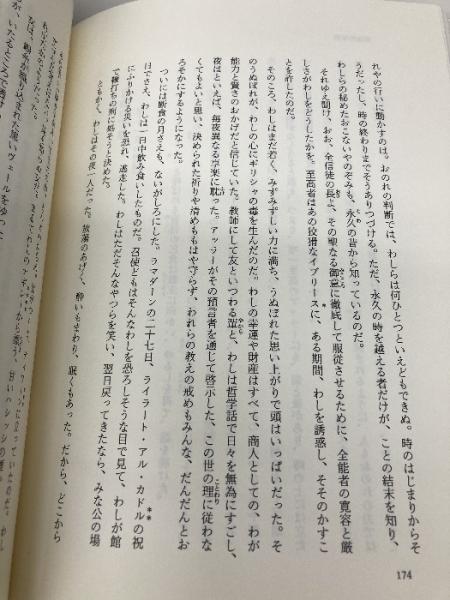 れやの行いに動かすのは。おのれの判断では、わしらは何ひとつといえどもできぬ。時のはじまりからそ
うだったし、時の終わりまでそうありつづける。ただ、永久の時を越える者だけが、ことの結末を知り、
わしらの秘めたおこないやのぞみも、永久の昔から知っているのだ。
それゆえ聞け、おお、全信徒の長よ、その聖なる御意に徹底して服従させるために、全能者の寛容と厳
しさがわしをどうしたかを。至高者はあの狡猾なイブリースに、ある期間、わしを誘惑し、そそのかすこ
とを許したのだ。
そのころ、わしはまだ若く、みずみずしい力に満ち、うぬぼれた思い上がりで頭はいっぱいだった。そ
のうぬぼれが、わしの心にギリシャの毒を生んだのだ。わしの幸運や財産はすべて、商人としての、わが
能力と賢さのおかげだと信じていた。教師にして友といつわる輩と、わしは哲学話で日々を無為にすごし、
夜はといえば、毎夜異なる享楽に耽った。アッラーがその預言者を通じて啓示した、この世の理に従わな
くてもよいと思い、決められた祈りや清めももはや守らず、われらの教えの戒めもみんな、だんだんとお
ろそかにするようになった。
ついには断食の月さえも、ないがしろにした。ラマダーンの二十七日、ライラート・アル・カドルの祝
日でさえ、わしは一日中飲み食いしたものだ。召使どもはそんなわしを恐ろしそうな目で見て、わしが館
にふりかける災いを恐れ、逃走した。わしはただそんなやつらを笑い、翌日戻ってきたなら、みな公の場
で鞭打ちの刑に処そうと決めた。
ともかく、わしはその夜一人だった。放蕩のあげく、酔いもまわり、眠くもあった。だから、どこから
174